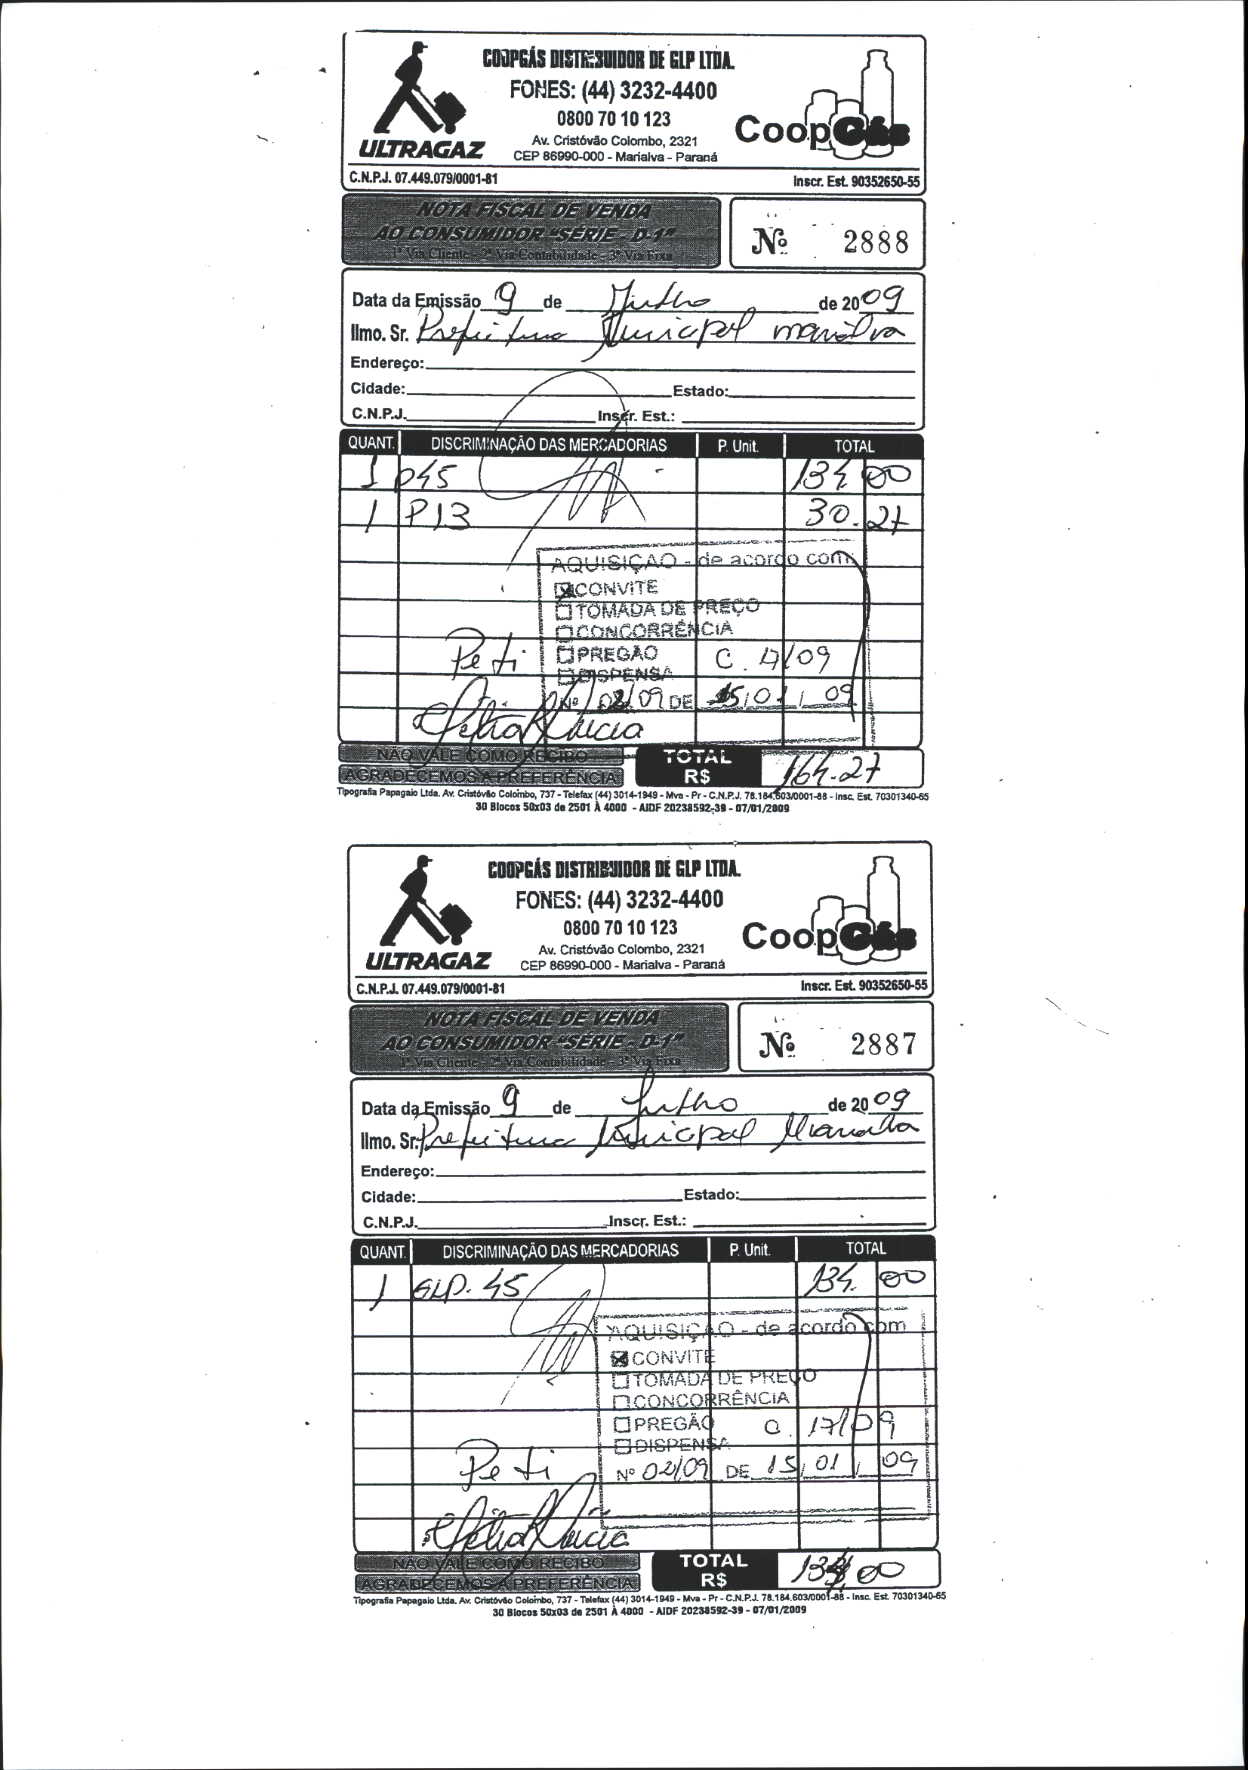 COOPGÁS DISTRIBUIDOR DE GLP LTDA.
FONES: (44) 3232-4400
0800 70 10 123
Av. Cristóvão Colombo, 2321
CEP 86990-000 - Marialva - Paraná
ULTRAGAZ
CoopGás
C.N.P.J. 07.449.079/0001-81
Inscr. Est. 90352650-55
NOTA FISCAL DE VENDA
AO CONSUMIDOR "SÉRIE - D-1"
1ª Via Cliente - 2ª Via Contabilidade - 3ª Via Fixa
Nº 2888
Data da Emissão 9 de Julho de 2009
Ilmo. Sr. Prefeitura Municipal Marialva
Endereço:
Cidade: Estado:
C.N.P.J. Inscr. Est.:
QUANT. DISCRIMINAÇÃO DAS MERCADORIAS P. Unit. TOTAL
1 P45 134 00
1 P13 30.27
AQUISIÇÃO - de acordo com
CONVITE
TOMADA DE PREÇO
CONCORRÊNCIA
PREGÃO C. 17/09
DISPENSA
Nº 02/09 DE 15/01/09
Peti
NÃO VALE COMO RECIBO
AGRADECEMOS A PREFERÊNCIA
TOTAL R$ 164.27
Tipografia Papagaio Ltda. Av. Cristóvão Colombo, 737 - Telefax (44) 3014-1949 - Mva - Pr - C.N.P.J. 78.184.603/0001-88 - Insc. Est. 70301340-65
30 Blocos 50x03 de 2501 À 4000 - AIDF 20238592-39 - 07/01/2009
COOPGÁS DISTRIBUIDOR DE GLP LTDA.
FONES: (44) 3232-4400
0800 70 10 123
Av. Cristóvão Colombo, 2321
CEP 86990-000 - Marialva - Paraná
ULTRAGAZ
CoopGás
C.N.P.J. 07.449.079/0001-81
Inscr. Est. 90352650-55
NOTA FISCAL DE VENDA
AO CONSUMIDOR "SÉRIE - D-1"
1ª Via Cliente - 2ª Via Contabilidade - 3ª Via Fixa
Nº 2887
Data da Emissão 9 de Julho de 2009
Ilmo. Sr. Prefeitura Municipal Marialva
Endereço:
Cidade: Estado:
C.N.P.J. Inscr. Est.:
QUANT. DISCRIMINAÇÃO DAS MERCADORIAS P. Unit. TOTAL
1 GLP. 45 134. 00
AQUISIÇÃO - de acordo com
CONVITE
TOMADA DE PREÇO
CONCORRÊNCIA
PREGÃO C. 17/09
DISPENSA
Nº 02/09 DE 15/01/09
Peti
NÃO VALE COMO RECIBO
AGRADECEMOS A PREFERÊNCIA
TOTAL R$ 134,00
Tipografia Papagaio Ltda. Av. Cristóvão Colombo, 737 - Telefax (44) 3014-1949 - Mva - Pr - C.N.P.J. 78.184.603/0001-88 - Insc. Est. 70301340-65
30 Blocos 50x03 de 2501 À 4000 - AIDF 20238592-39 - 07/01/2009